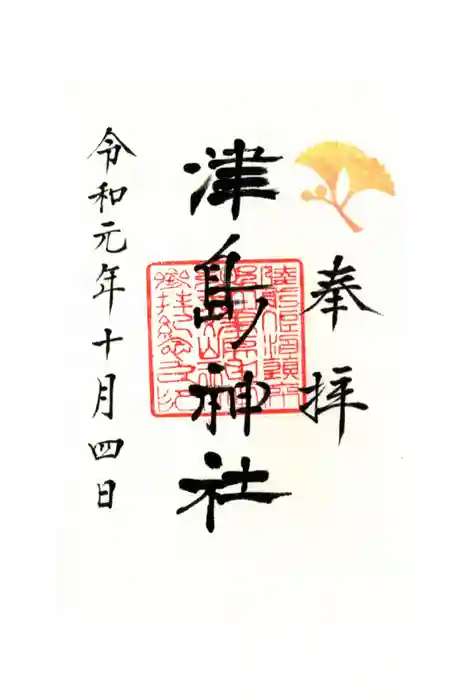 奉拝
津島神社
令和元年十月四日